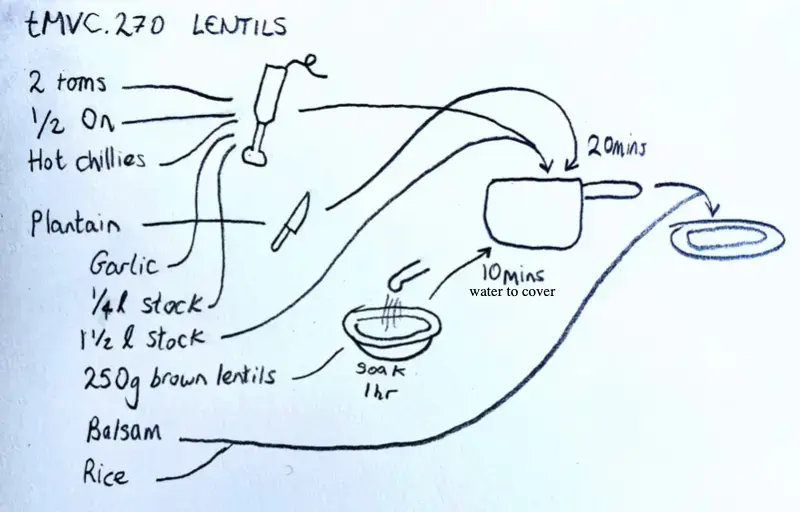 tMVC.270 LENTILS
2 toms
1/2 On
Hot chillies
Plantain
Garlic
1/4 l stock
1 1/2 l stock
250g brown lentils
Balsam
Rice
soak
1hr
10mins
water to cover
20mins